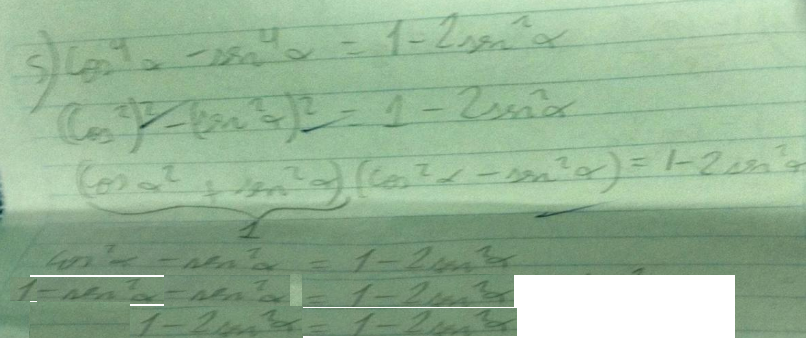 5) cos⁴α - sen⁴α = 1 - 2sen²α
(cos²)² - (sen²α)² = 1 - 2sen²α
(cosα² + sen²α)(cos²α - sen²α) = 1 - 2sen²α
1
cos²α - sen²α = 1 - 2sen²α
1 - sen²α - sen²α = 1 - 2sen²α
1 - 2sen²α = 1 - 2sen²α